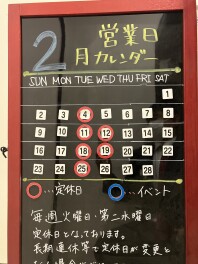 2月 営業日
カレンダー
SUN MON TUE WED THU FRI SAT
1
2 3 4 5 6 7 8
9 10 11 12 13 14 15
16 17 18 19 20 21 22
23 24 25 26 27 28
○…定休日 ○…イベント
毎週火曜日・第二水曜日
定休日となっております。
長期連休等で定休日が変更と
なる場合が